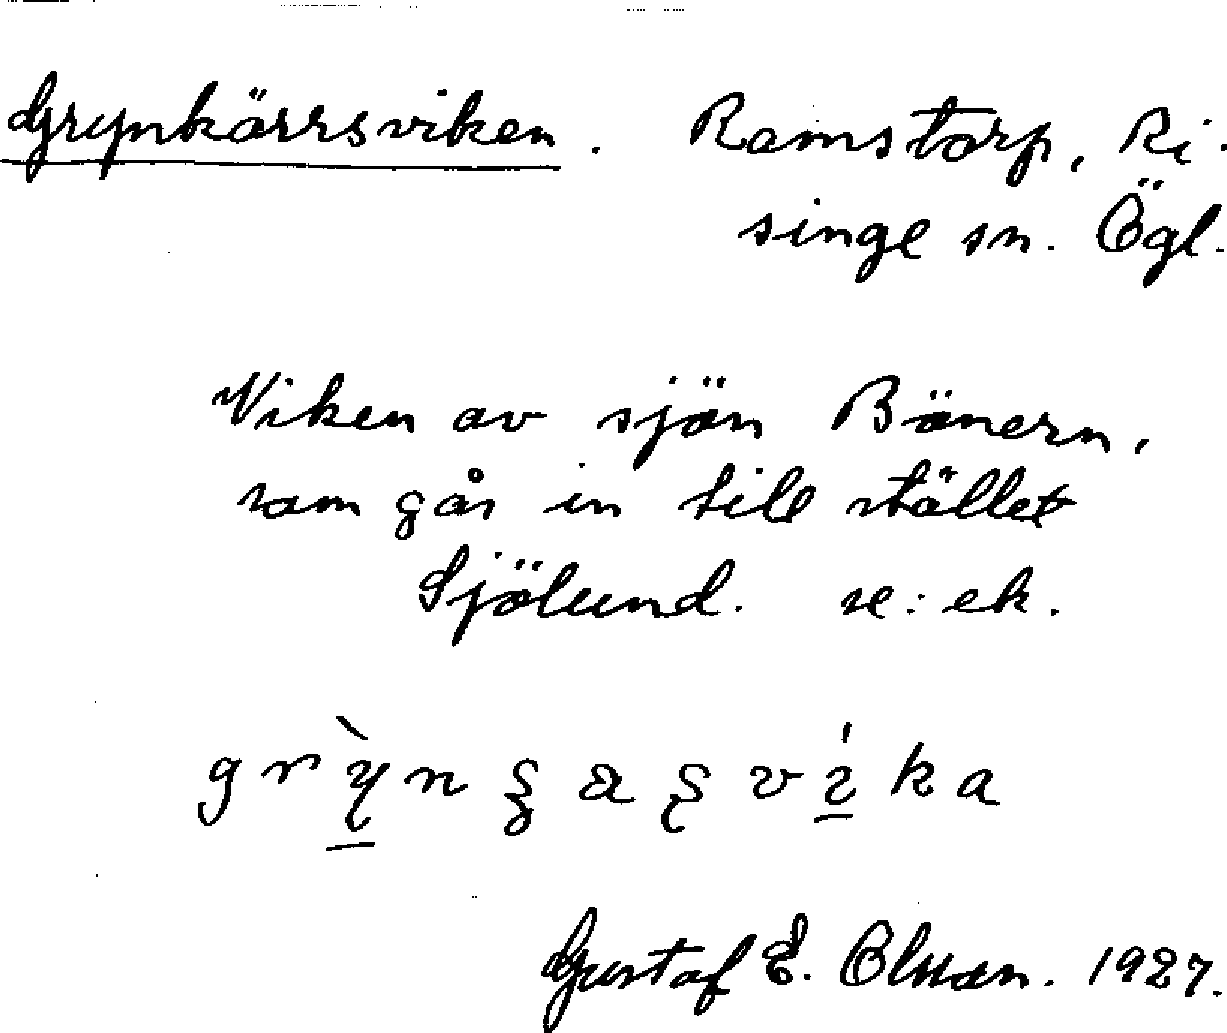 Grynkärrsviken. Ramstorp, Ri-
singe sn. Ögl.
Viken av sjön Bönern,
som går in till stället
Sjölund. se: ek.
Gustaf E. Olsson. 1927.